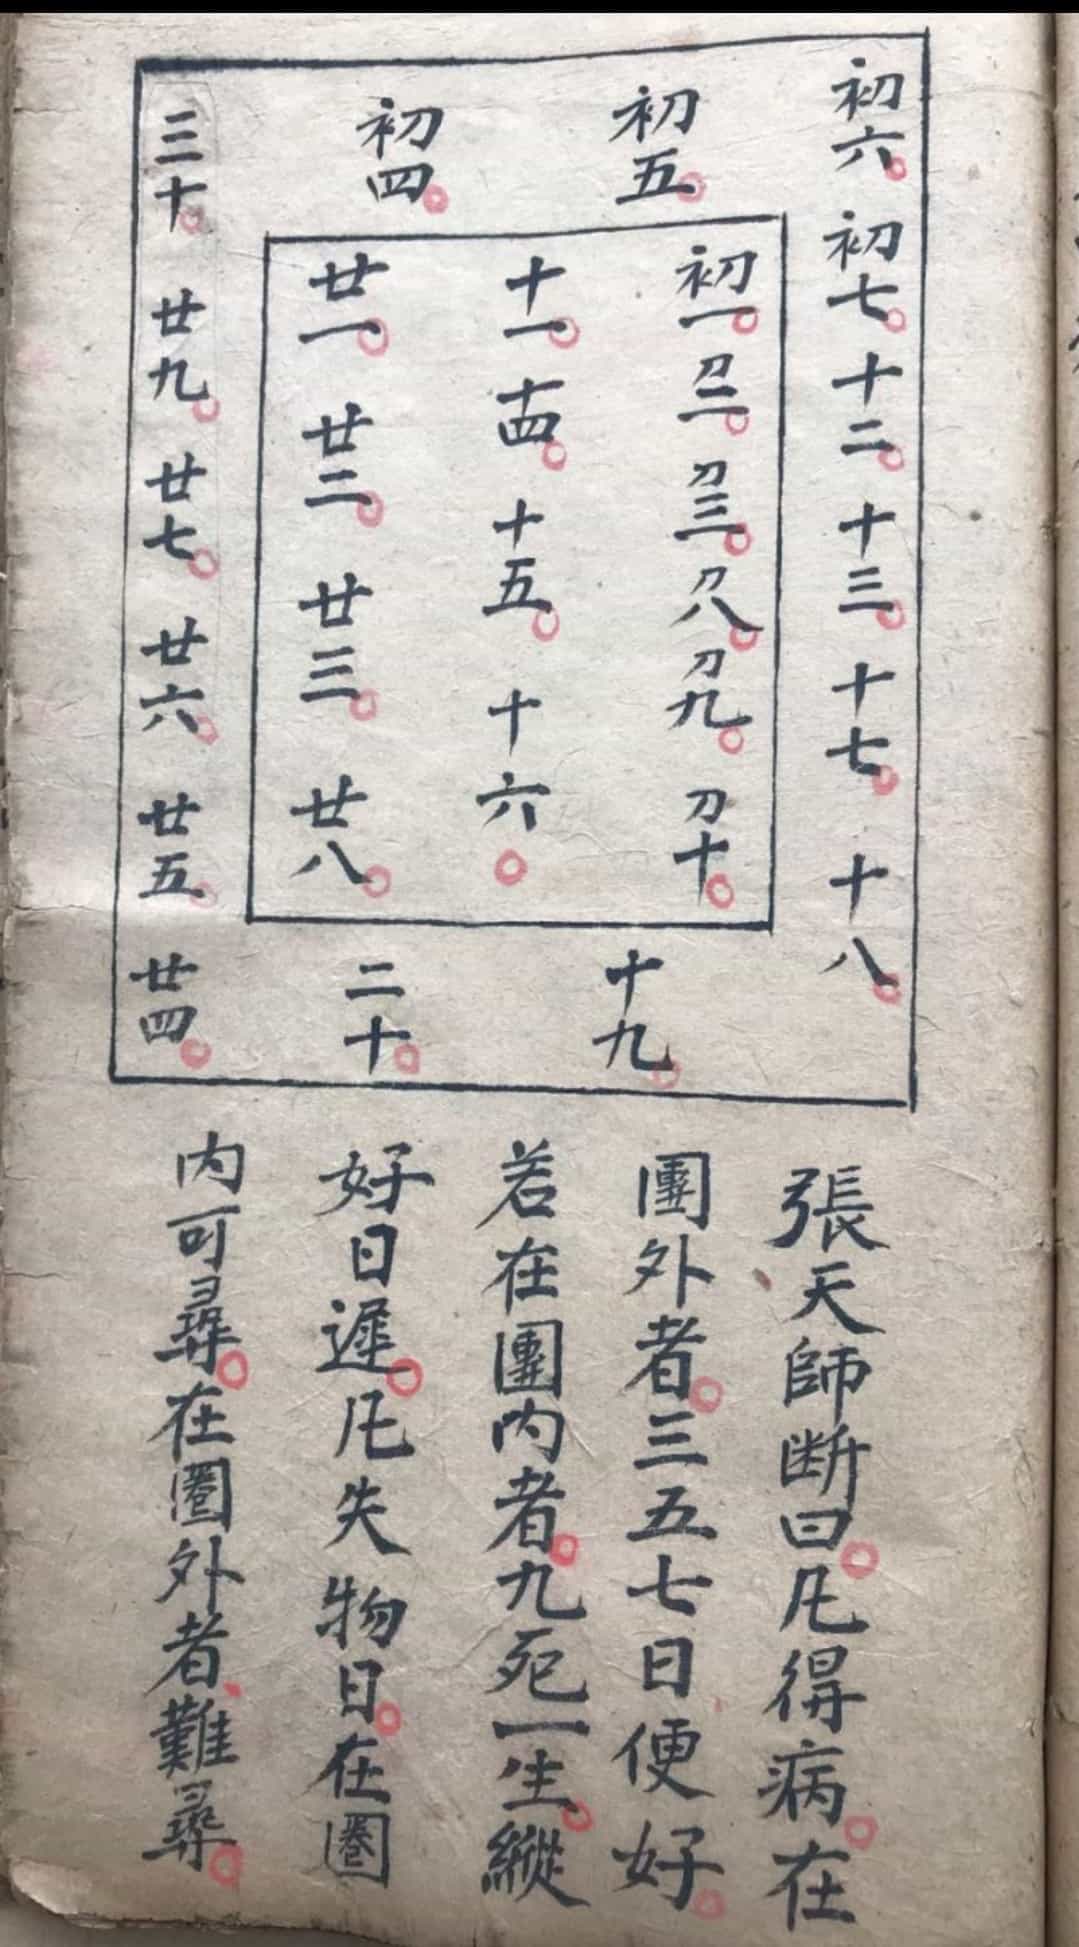 初六。初七。十二。十三。十七。十八。
初五。
十九。
初一。刀二。刀三。刀八。刀九。刀十。
十一。十四。十五。十六。
廿一。廿二。廿三。廿八。
初四。
二十。
三十。廿九。廿七。廿六。廿五。廿四。
張天師断曰。凡得病。在
團外者。三五七日便好。
若在團内者。九死一生。縱
好日遲。凡失物日。在圈
内可尋。在圈外者、難尋。